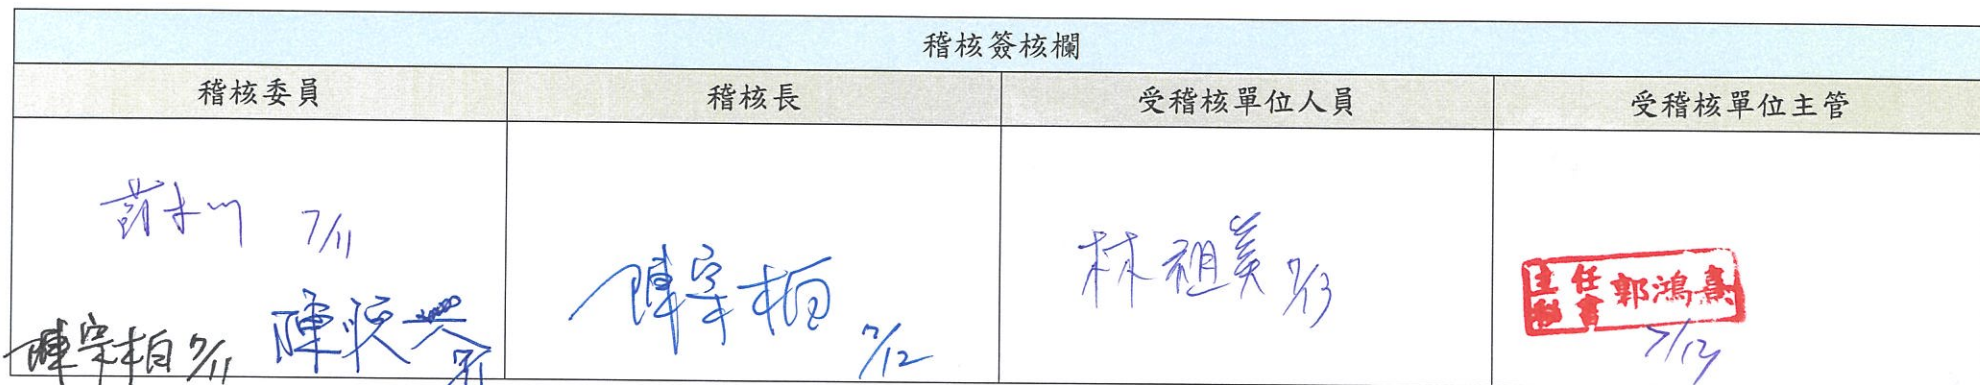 稽核簽核欄
稽核委員 稽核長 受稽核單位人員 受稽核單位主管
7/11
陳宗柏 7/11
陳宗柏 7/12
林祖美 7/13
主任秘書 郭鴻熹
7/13